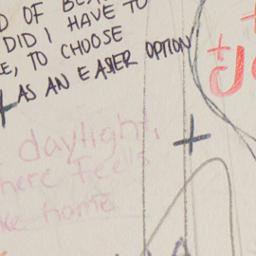 D OF
DID I HAVE TO
E, TO CHOOSE
AS AN EASIER OPTION
daylight,
here feels
ke home